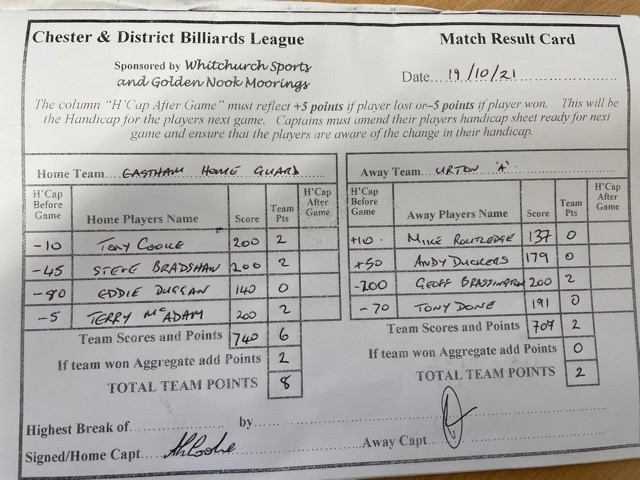 Chester & District Billiards League Match Result Card
Sponsored by Whitchurch Sports
and Golden Nook Moorings
Date....19/10/21
The column "H'Cap After Game" must reflect +5 points if player lost or –5 points if player won. This will be
the Handicap for the players next game. Captains must amend their players handicap sheet ready for next
game and ensure that the players are aware of the change in their handicap.
Home Team....EASTHAM HOME GUARD
H'Cap Before Game Home Players Name Score Team Pts H'Cap After Game
-10 TONY COOKE 200 2
-45 STEVE BRADSHAW 200 2
-80 EDDIE DUGGAN 140 0
-5 TERRY McADAM 200 2
Team Scores and Points 740 6
If team won Aggregate add Points 2
TOTAL TEAM POINTS 8
Away Team....URTON 'A'
H'Cap Before Game Away Players Name Score Team Pts H'Cap After Game
+10 MIKE ROUTLEDGE 137 0
+50 ANDY DUCKERS 179 0
-200 GEOFF BRASSINGTON 200 2
-70 TONY DONE 191 0
Team Scores and Points 707 2
If team won Aggregate add Points 0
TOTAL TEAM POINTS 2
Highest Break of....................by....................
Signed/Home Capt.... Away Capt....